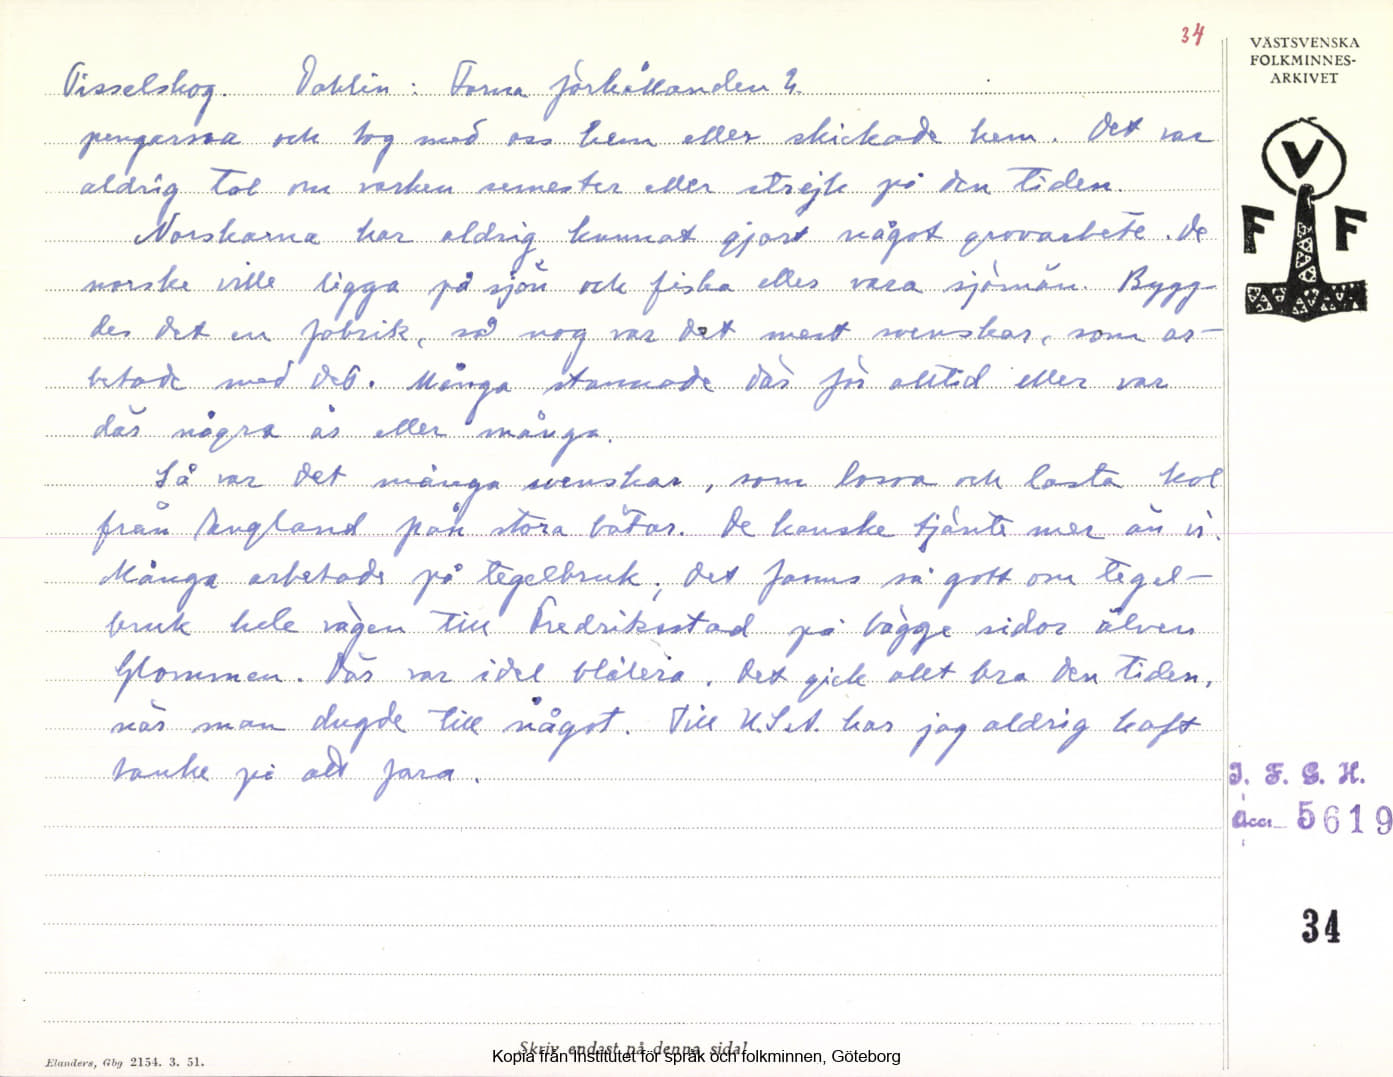 34
VÄSTSVENSKA
FOLKMINNES-
ARKIVET
V
F F
Tisselskog. Dahlin: Forna förhållanden 2.
pengarna och tog med oss hem eller skickade hem. Det var
aldrig tal om varken semester eller strejk på den tiden.
Norskarna har aldrig kunnat gjort något grovarbete. De
norske ville ligga på sjön och fiska eller vara sjömän. Bygg-
des det en fabrik, så nog var det mest svenskar, som ar-
betade med det. Många stannade där för alltid eller var
där några år eller många.
Så var det många svenskar, som lossa och lasta kol
från England från stora båtar. De kanske tjänte mer än vi.
Många arbetade på tegelbruk, det fanns så gott om tegel-
bruk hele vägen till Fredriksstad på bägge sidor älven
Glommen. Där var idel blålera. Det gick allt bra den tiden,
när man dugde till något. Till U.S.A. har jag aldrig haft
tanke på att fara.
I. F. G. H.
acc. 5619
34
Skriv endast på denna sida!
Kopia från Institutet för språk och folkminnen, Göteborg
Elanders, Gbg 2154. 3. 51.